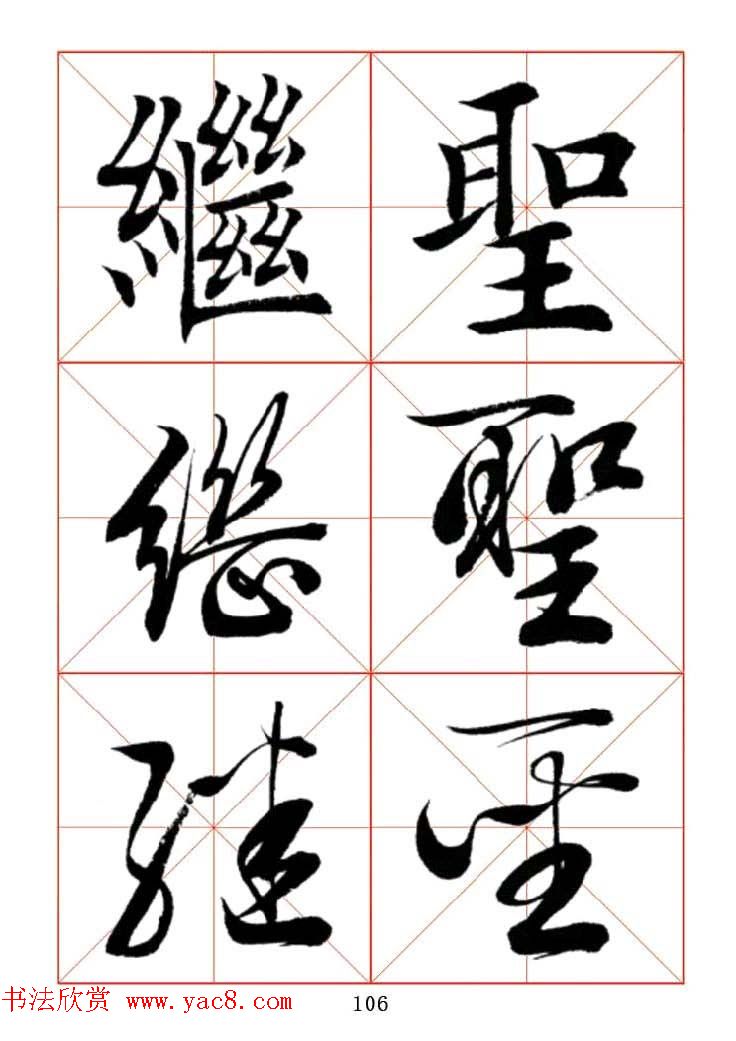 聖聖聖
繼繼繼
书法欣赏 www.yac8.com
106